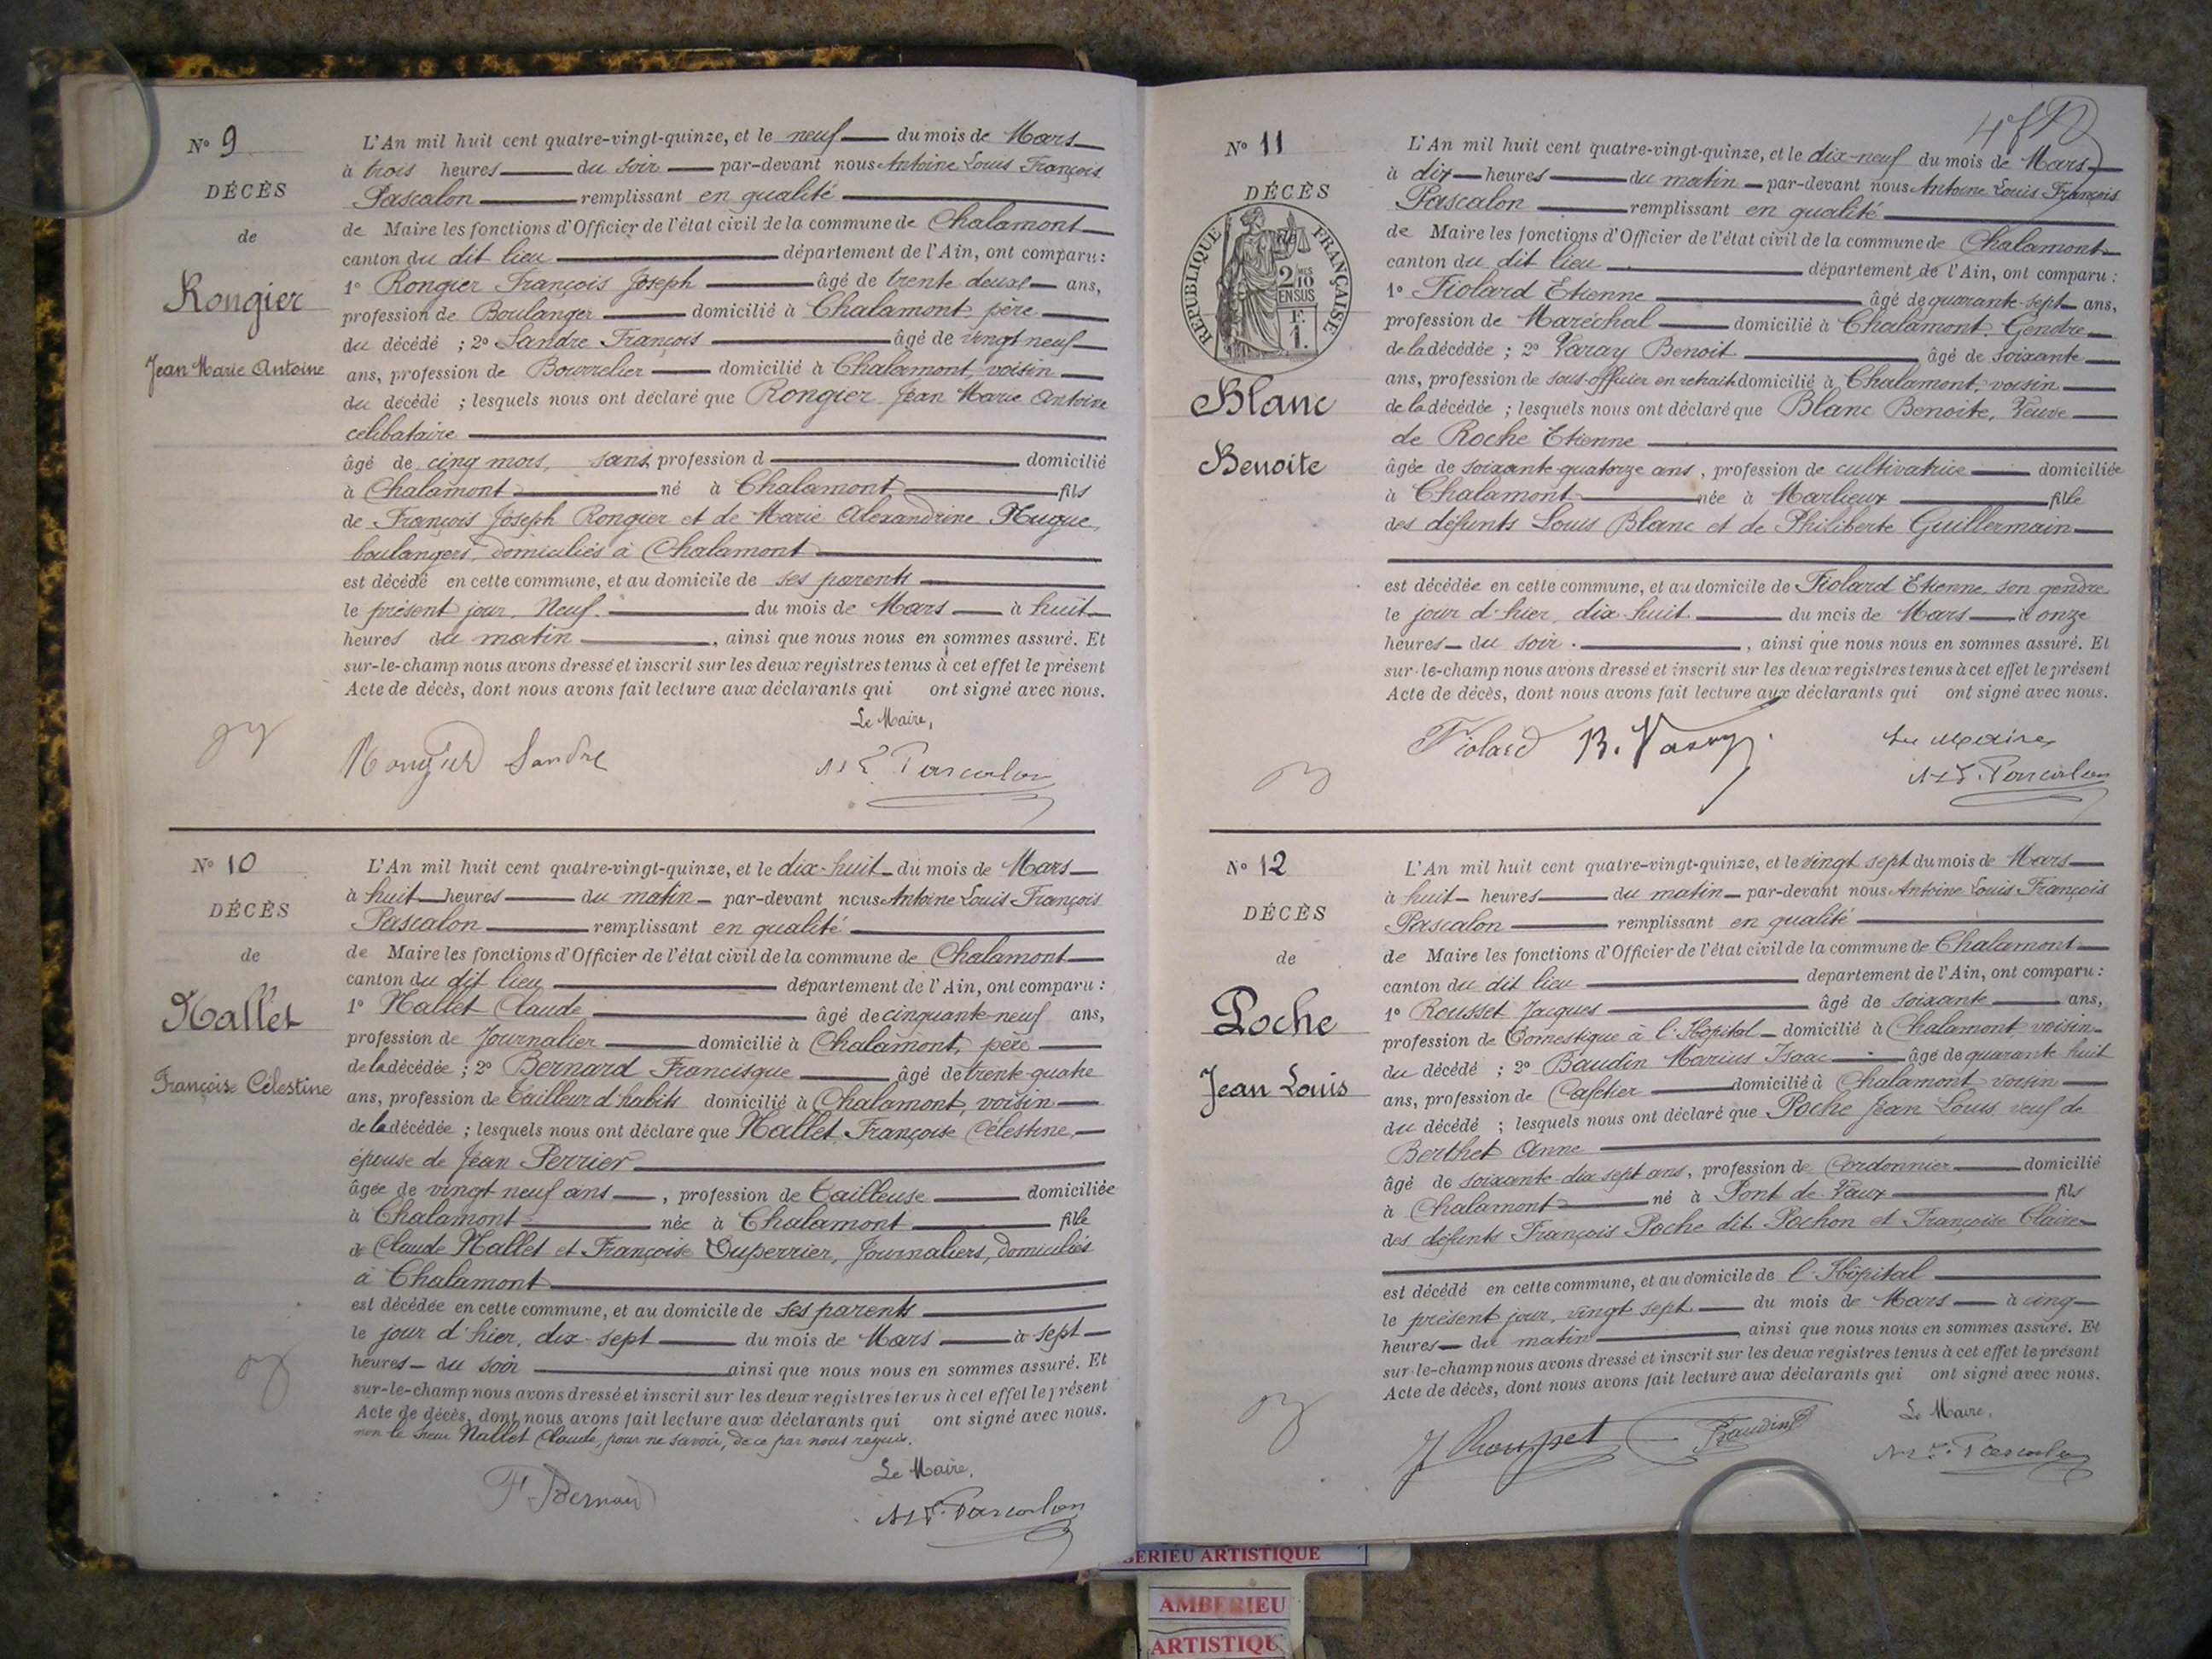 N° 9
DÉCÈS
de
Rongier
Jean Marie Antoine
L'An mil huit cent quatre-vingt-quinze, et le neuf du mois de Mars
à trois heures du soir par-devant nous Antoine Louis François
Pascalon remplissant en qualité
de Maire les fonctions d'Officier de l'état civil de la commune de Chalamont
canton du dit lieu département de l'Ain, ont comparu :
1° Rongier François Joseph âgé de trente deux ans,
profession de Boulanger domicilié à Chalamont, père
du décédé ; 2° Sandre François âgé de vingt neuf
ans, profession de Bourrelier domicilié à Chalamont, voisin
du décédé ; lesquels nous ont déclaré que Rongier Jean Marie Antoine
célibataire
âgé de cinq mois, sans profession d domicilié
à Chalamont né à Chalamont fils
de François Joseph Rongier et de Marie Alexandrine Hugue,
boulangers, domiciliés à Chalamont
est décédé en cette commune, et au domicile de ses parents
le présent jour, Neuf. du mois de Mars à huit
heures du matin , ainsi que nous nous en sommes assuré. Et
sur-le-champ nous avons dressé et inscrit sur les deux registres tenus à cet effet le présent
Acte de décès, dont nous avons fait lecture aux déclarants qui ont signé avec nous.
Le Maire,
Rongier Sandre
A L F. Pascalon
N° 10
DÉCÈS
de
Nallet
Françoise Célestine
L'An mil huit cent quatre-vingt-quinze, et le dix-huit du mois de Mars
à huit heures du matin par-devant nous Antoine Louis François
Pascalon remplissant en qualité
de Maire les fonctions d'Officier de l'état civil de la commune de Chalamont
canton du dit lieu département de l'Ain, ont comparu :
1° Nallet Claude âgé de cinquante-neuf ans,
profession de Journalier domicilié à Chalamont, père
de la décédée ; 2° Bernard Francisque âgé de trente-quatre
ans, profession de Tailleur d'habits domicilié à Chalamont, voisin
de la décédée ; lesquels nous ont déclaré que Nallet Françoise Célestine,
épouse de Jean Perrier
âgée de vingt neuf ans , profession de Tailleuse domiciliée
à Chalamont née à Chalamont fille
de Claude Nallet et Françoise Duperrier, Journaliers, domiciliés
à Chalamont
est décédée en cette commune, et au domicile de ses parents
le jour d'hier, dix-sept du mois de Mars à sept
heures du soir ainsi que nous nous en sommes assuré. Et
sur-le-champ nous avons dressé et inscrit sur les deux registres tenus à cet effet le présent
Acte de décès, dont nous avons fait lecture aux déclarants qui ont signé avec nous.
non le sieur Nallet Claude, pour ne savoir, de ce par nous requis.
Le Maire,
F. Bernard
A L F. Pascalon
N° 11
DÉCÈS
de
RÉPUBLIQUE FRANÇAISE
2 MES
10
EN SUS
F.
1.
Blanc
Benoite
L'An mil huit cent quatre-vingt-quinze, et le dix-neuf du mois de Mars
à dix heures du matin par-devant nous Antoine Louis François
Pascalon remplissant en qualité
de Maire les fonctions d'Officier de l'état civil de la commune de Chalamont
canton du dit lieu département de l'Ain, ont comparu :
1° Fiolard Etienne âgé de quarante-sept ans,
profession de Maréchal domicilié à Chalamont, Gendre
de la décédée ; 2° Varay Benoit âgé de soixante
ans, profession de sous-officier en retraite domicilié à Chalamont, voisin
de la décédée ; lesquels nous ont déclaré que Blanc Benoite, Veuve
de Roche Etienne
âgée de soixante-quatorze ans , profession de cultivatrice domiciliée
à Chalamont née à Marlieux fille
des défunts Louis Blanc et de Philiberte Guillermain
est décédée en cette commune, et au domicile de Fiolard Etienne, son gendre
le jour d'hier, dix-huit du mois de Mars à onze
heures du soir. , ainsi que nous nous en sommes assuré. Et
sur-le-champ nous avons dressé et inscrit sur les deux registres tenus à cet effet le présent
Acte de décès, dont nous avons fait lecture aux déclarants qui ont signé avec nous.
Fiolard B. Varay
Le Maire
A L F. Pascalon
N° 12
DÉCÈS
de
Poche
Jean Louis
L'An mil huit cent quatre-vingt-quinze, et le vingt sept du mois de Mars
à huit heures du matin par-devant nous Antoine Louis François
Pascalon remplissant en qualité
de Maire les fonctions d'Officier de l'état civil de la commune de Chalamont
canton du dit lieu département de l'Ain, ont comparu :
1° Rousset Jacques âgé de soixante ans,
profession de Domestique à l'Hôpital domicilié à Chalamont, voisin
du décédé ; 2° Baudin Marius Isaac âgé de quarante huit
ans, profession de Cafetier domicilié à Chalamont voisin
du décédé ; lesquels nous ont déclaré que Poche Jean Louis, veuf de
Berthet Anne
âgé de soixante-dix sept ans, profession de Cordonnier domicilié
à Chalamont né à Pont de Vaux fils
des défunts François Poche dit Pochon et Françoise Claire
est décédé en cette commune, et au domicile de l'Hôpital
le présent jour, vingt sept du mois de Mars à cinq
heures du matin ainsi que nous nous en sommes assuré. Et
sur-le-champ nous avons dressé et inscrit sur les deux registres tenus à cet effet le présent
Acte de décès, dont nous avons fait lecture aux déclarants qui ont signé avec nous.
Le Maire,
J Rousset Baudin
A L F. Pascalon
BERIEU ARTISTIQUE
AMBERIEU
ARTISTIQU